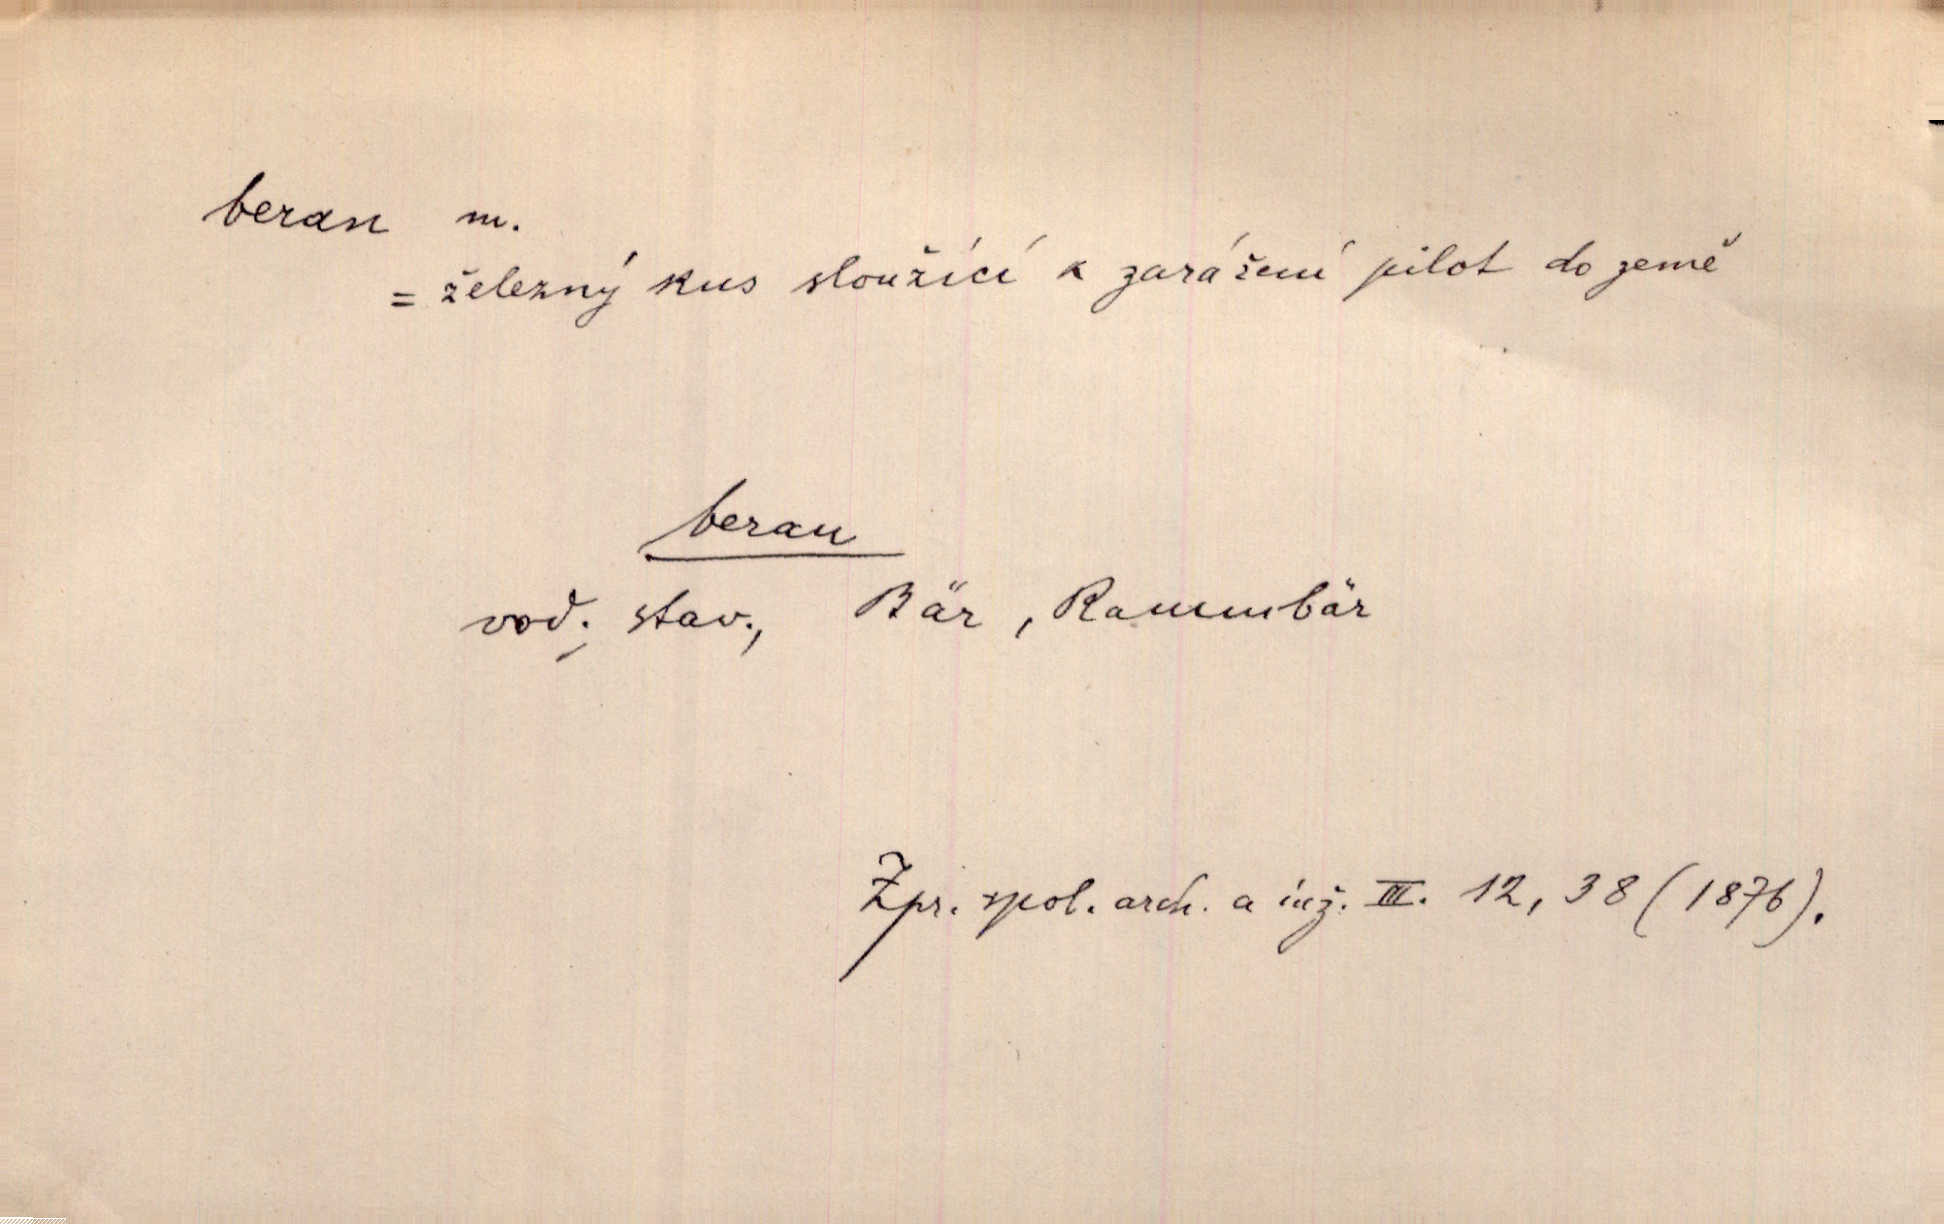 beran m.
= železný kus sloužící k zarážení pilot do země
beran
vod. stav., Bär, Rammbär
Zpr. spol. arch. a inž. III. 12, 38 (1876).